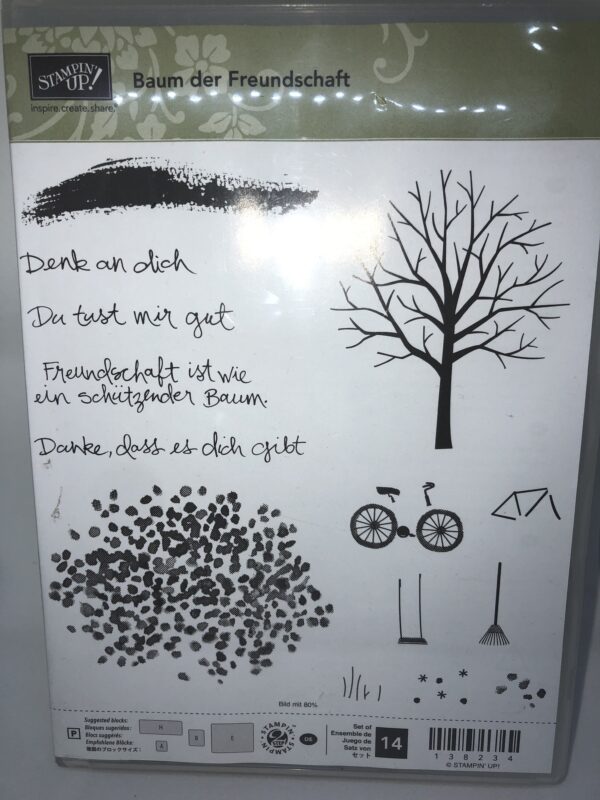 STAMPIN' UP!
inspire.create.share.
Baum der Freundschaft
Denk an dich
Du tust mir gut
Freundschaft ist wie
ein schützender Baum.
Danke, dass es dich gibt
Bild mit 80%
P
Suggested blocks:
Bloques sugeridos:
Blocs suggérés:
Empfohlene Blöcke:
推奨のブロックサイズ:
H
A
B
E
STAMPIN'
STAMPIN'
DE
Set of
Ensemble de
Juego de
Satz von
セット
14
138234
© STAMPIN' UP!